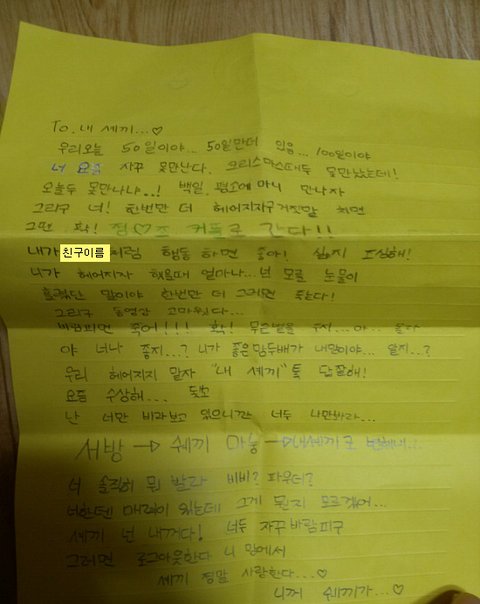 To. 내 세끼...♡
우리오늘 50일이야... 50일만더 있음... 100일이야
너 요즘 자꾸 못만난다. 크리스마스때두 못만났는데!
오늘두 못만나냐..! 백일. 평소에 마니 만나자
그리구 너! 한번만 더 헤어지자구 거짓말 치면
그땐 확! 정♡즈 커플로 간다!!
내가 친구이름 처럼 행동 하면 좋아! 싫지 조심해!
니가 헤어지자 했을때 얼마나... 넌 모를 눈물이
흘렀단 말이야 한번만 더 그러면 죽는다!
그리구 동영상 고마웠다...
바람피면 죽어!!! 확! 무슨벌을 주지...아... 몰라
야 너 나 좋지...? 니가 좋은
우리 헤어지지 말자 "내 세끼"
요즘 수상해...
난 너만 바라보고 있으니깐 너두 나만바라...
서방 → 쉐끼 마눌 → 내세끼로
너 솔직히 뭐 발라 비비? 파우더?
너한텐 매력이 있는데 그게 뭔지 모르겠어...
세끼 넌 내꺼다! 너두 자꾸 바람피구
그러면 로그아웃한다 니 맘에서
세끼 정말 사랑한다...♡
니꺼 쉐끼가...♡